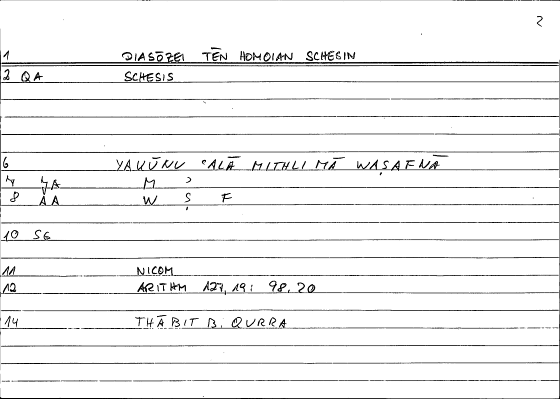 2
1 DIASŌZEI TĒN HOMOIAN SCHESIN
2 QA SCHESIS
6 YAKŪNU ʿALĀ MITHLI MĀ WAṢAFNĀ
M ʾ
8 W Ṣ F
10 SG
11 NICOM
12 ARITHM 127,19: 98.20
14 THĀBIT B. QURRA